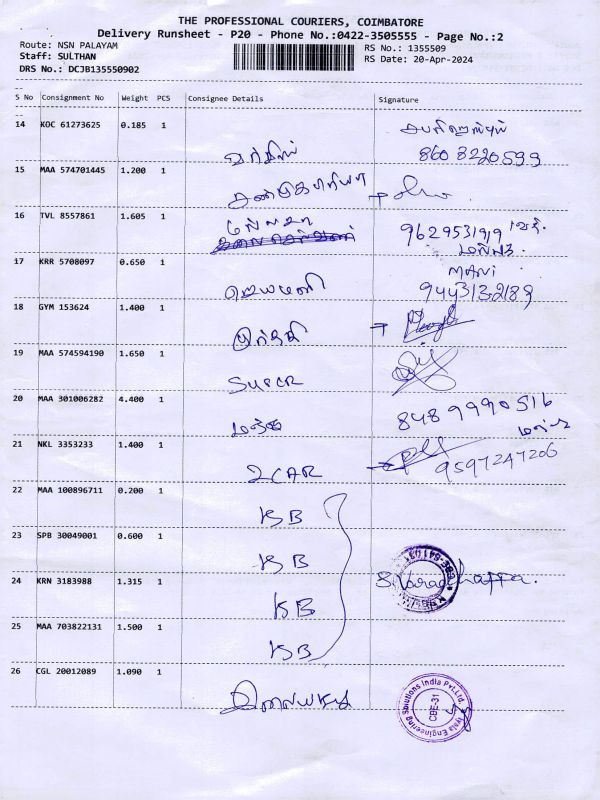 THE PROFESSIONAL COURIERS, COIMBATORE
Delivery Runsheet - P20 - Phone No.:0422-3505555 - Page No.:2
Route: NSN PALAYAM
Staff: SULTHAN
DRS No.: DCJB135550902
RS No.: 1355509
RS Date: 20-Apr-2024
S No Consignment No Weight PCS Consignee Details Signature
14 KOC 61273625 0.185 1
860 8220599
15 MAA 574701445 1.200 1
16 TVL 8557861 1.605 1 மல்லிகா
9629531919
17 KRR 5708097 0.650 1 ஜெயமணி
MANI
9443132189
18 GYM 153624 1.400 1 மூர்த்தி
19 MAA 574594190 1.650 1 SUPER
20 MAA 301006282 4.400 1 மஞ்சு 8489990516
21 NKL 3353233 1.400 1 2CAR 9597247206
22 MAA 100896711 0.200 1 KB
23 SPB 30049001 0.600 1 KB
24 KRN 3183988 1.315 1 KB
25 MAA 703822131 1.500 1 KB
26 CGL 20012089 1.090 1
Engineering Solutions India Pvt.Ltd.
CBE-31